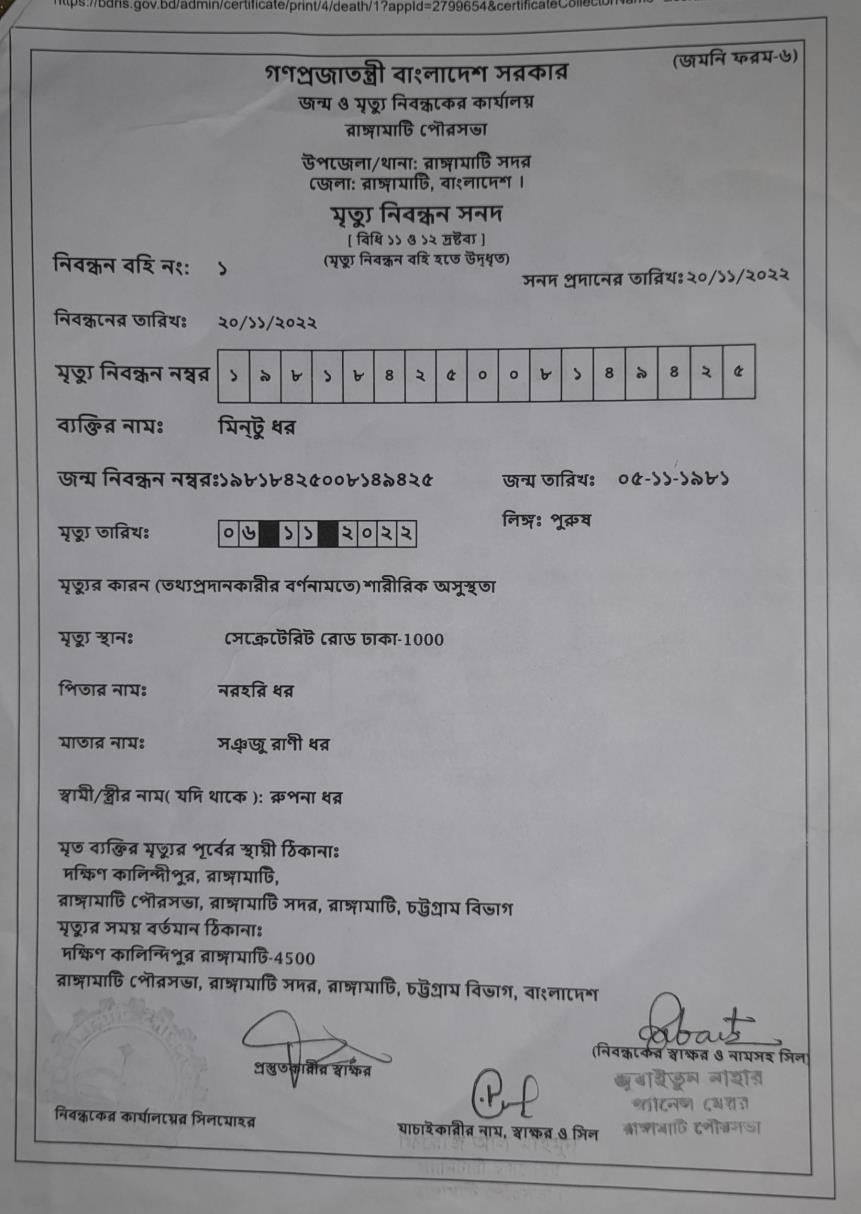 https://bdris.gov.bd/admin/certificate/print/4/death/1?appId=2799654&certificateCollectorName
(জমনি ফরম-৬)
গণপ্রজাতন্ত্রী বাংলাদেশ সরকার
জন্ম ও মৃত্যু নিবন্ধকের কার্যালয়
রাঙ্গামাটি পৌরসভা
উপজেলা/থানা: রাঙ্গামাটি সদর
জেলা: রাঙ্গামাটি, বাংলাদেশ ।
মৃত্যু নিবন্ধন সনদ
[ বিধি ১১ ও ১২ দ্রষ্টব্য ]
(মৃত্যু নিবন্ধন বহি হতে উদ্ধৃত)
নিবন্ধন বহি নং: ১
সনদ প্রদানের তারিখ: ২০/১১/২০২২
নিবন্ধনের তারিখঃ ২০/১১/২০২২
মৃত্যু নিবন্ধন নম্বর ১ ৯ ৮ ১ ৮ ৪ ২ ৫ ০ ০ ৮ ১ ৪ ৯ ৪ ২ ৫
ব্যক্তির নামঃ মিন্টু ধর
জন্ম নিবন্ধন নম্বরঃ১৯৮১৮৪২৫০০৮১৪৯৪২৫ জন্ম তারিখঃ ০৫-১১-১৯৮১
মৃত্যু তারিখঃ ০৬ ১১ ২০২২ লিঙ্গঃ পুরুষ
মৃত্যুর কারন (তথ্যপ্রদানকারীর বর্ণনামতে) শারীরিক অসুস্থতা
মৃত্যু স্থানঃ সেক্রেটেরিট রোড ঢাকা-1000
পিতার নামঃ নরহরি ধর
মাতার নামঃ সঞ্জু রাণী ধর
স্বামী/স্ত্রীর নাম( যদি থাকে ): রুপনা ধর
মৃত ব্যক্তির মৃত্যুর পূর্বের স্থায়ী ঠিকানাঃ
দক্ষিণ কালিন্দীপুর, রাঙ্গামাটি,
রাঙ্গামাটি পৌরসভা, রাঙ্গামাটি সদর, রাঙ্গামাটি, চট্টগ্রাম বিভাগ
মৃত্যুর সময় বর্তমান ঠিকানাঃ
দক্ষিণ কালিন্দিপুর রাঙ্গামাটি-4500
রাঙ্গামাটি পৌরসভা, রাঙ্গামাটি সদর, রাঙ্গামাটি, চট্টগ্রাম বিভাগ, বাংলাদেশ
প্রস্তুতকারীর স্বাক্ষর
(নিবন্ধকের স্বাক্ষর ও নামসহ সিল)
জুবাইতুন নাহার
প্যানেল মেয়র
রাঙ্গামাটি পৌরসভা
নিবন্ধকের কার্যালয়ের সিলমোহর
যাচাইকারীর নাম, স্বাক্ষর ও সিল